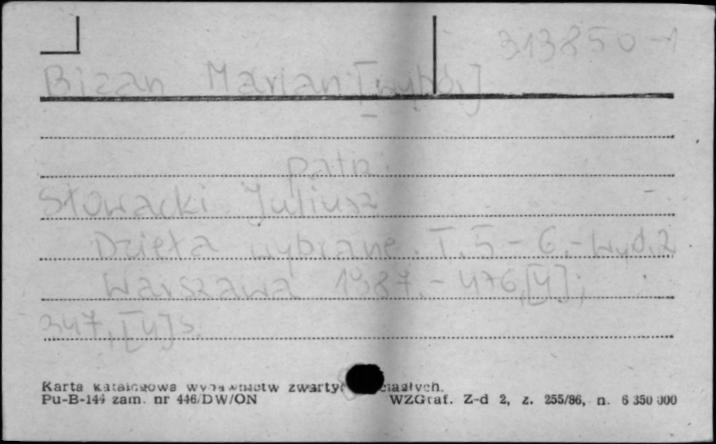 313850-1
Bizan Marian [wybór]
patrz
Słowacki Juliusz
Dzieła wybrane. T. 5-6.- Wyd. 2
Warszawa 1987.- 476, [4];
347, [4] s.
Karta katalogowa wydawnictw zwartych ciągłych.
Pu-B-144 zam. nr 446/DW/ON WZGraf. Z-d 2, z. 255/86, n. 6 350 000